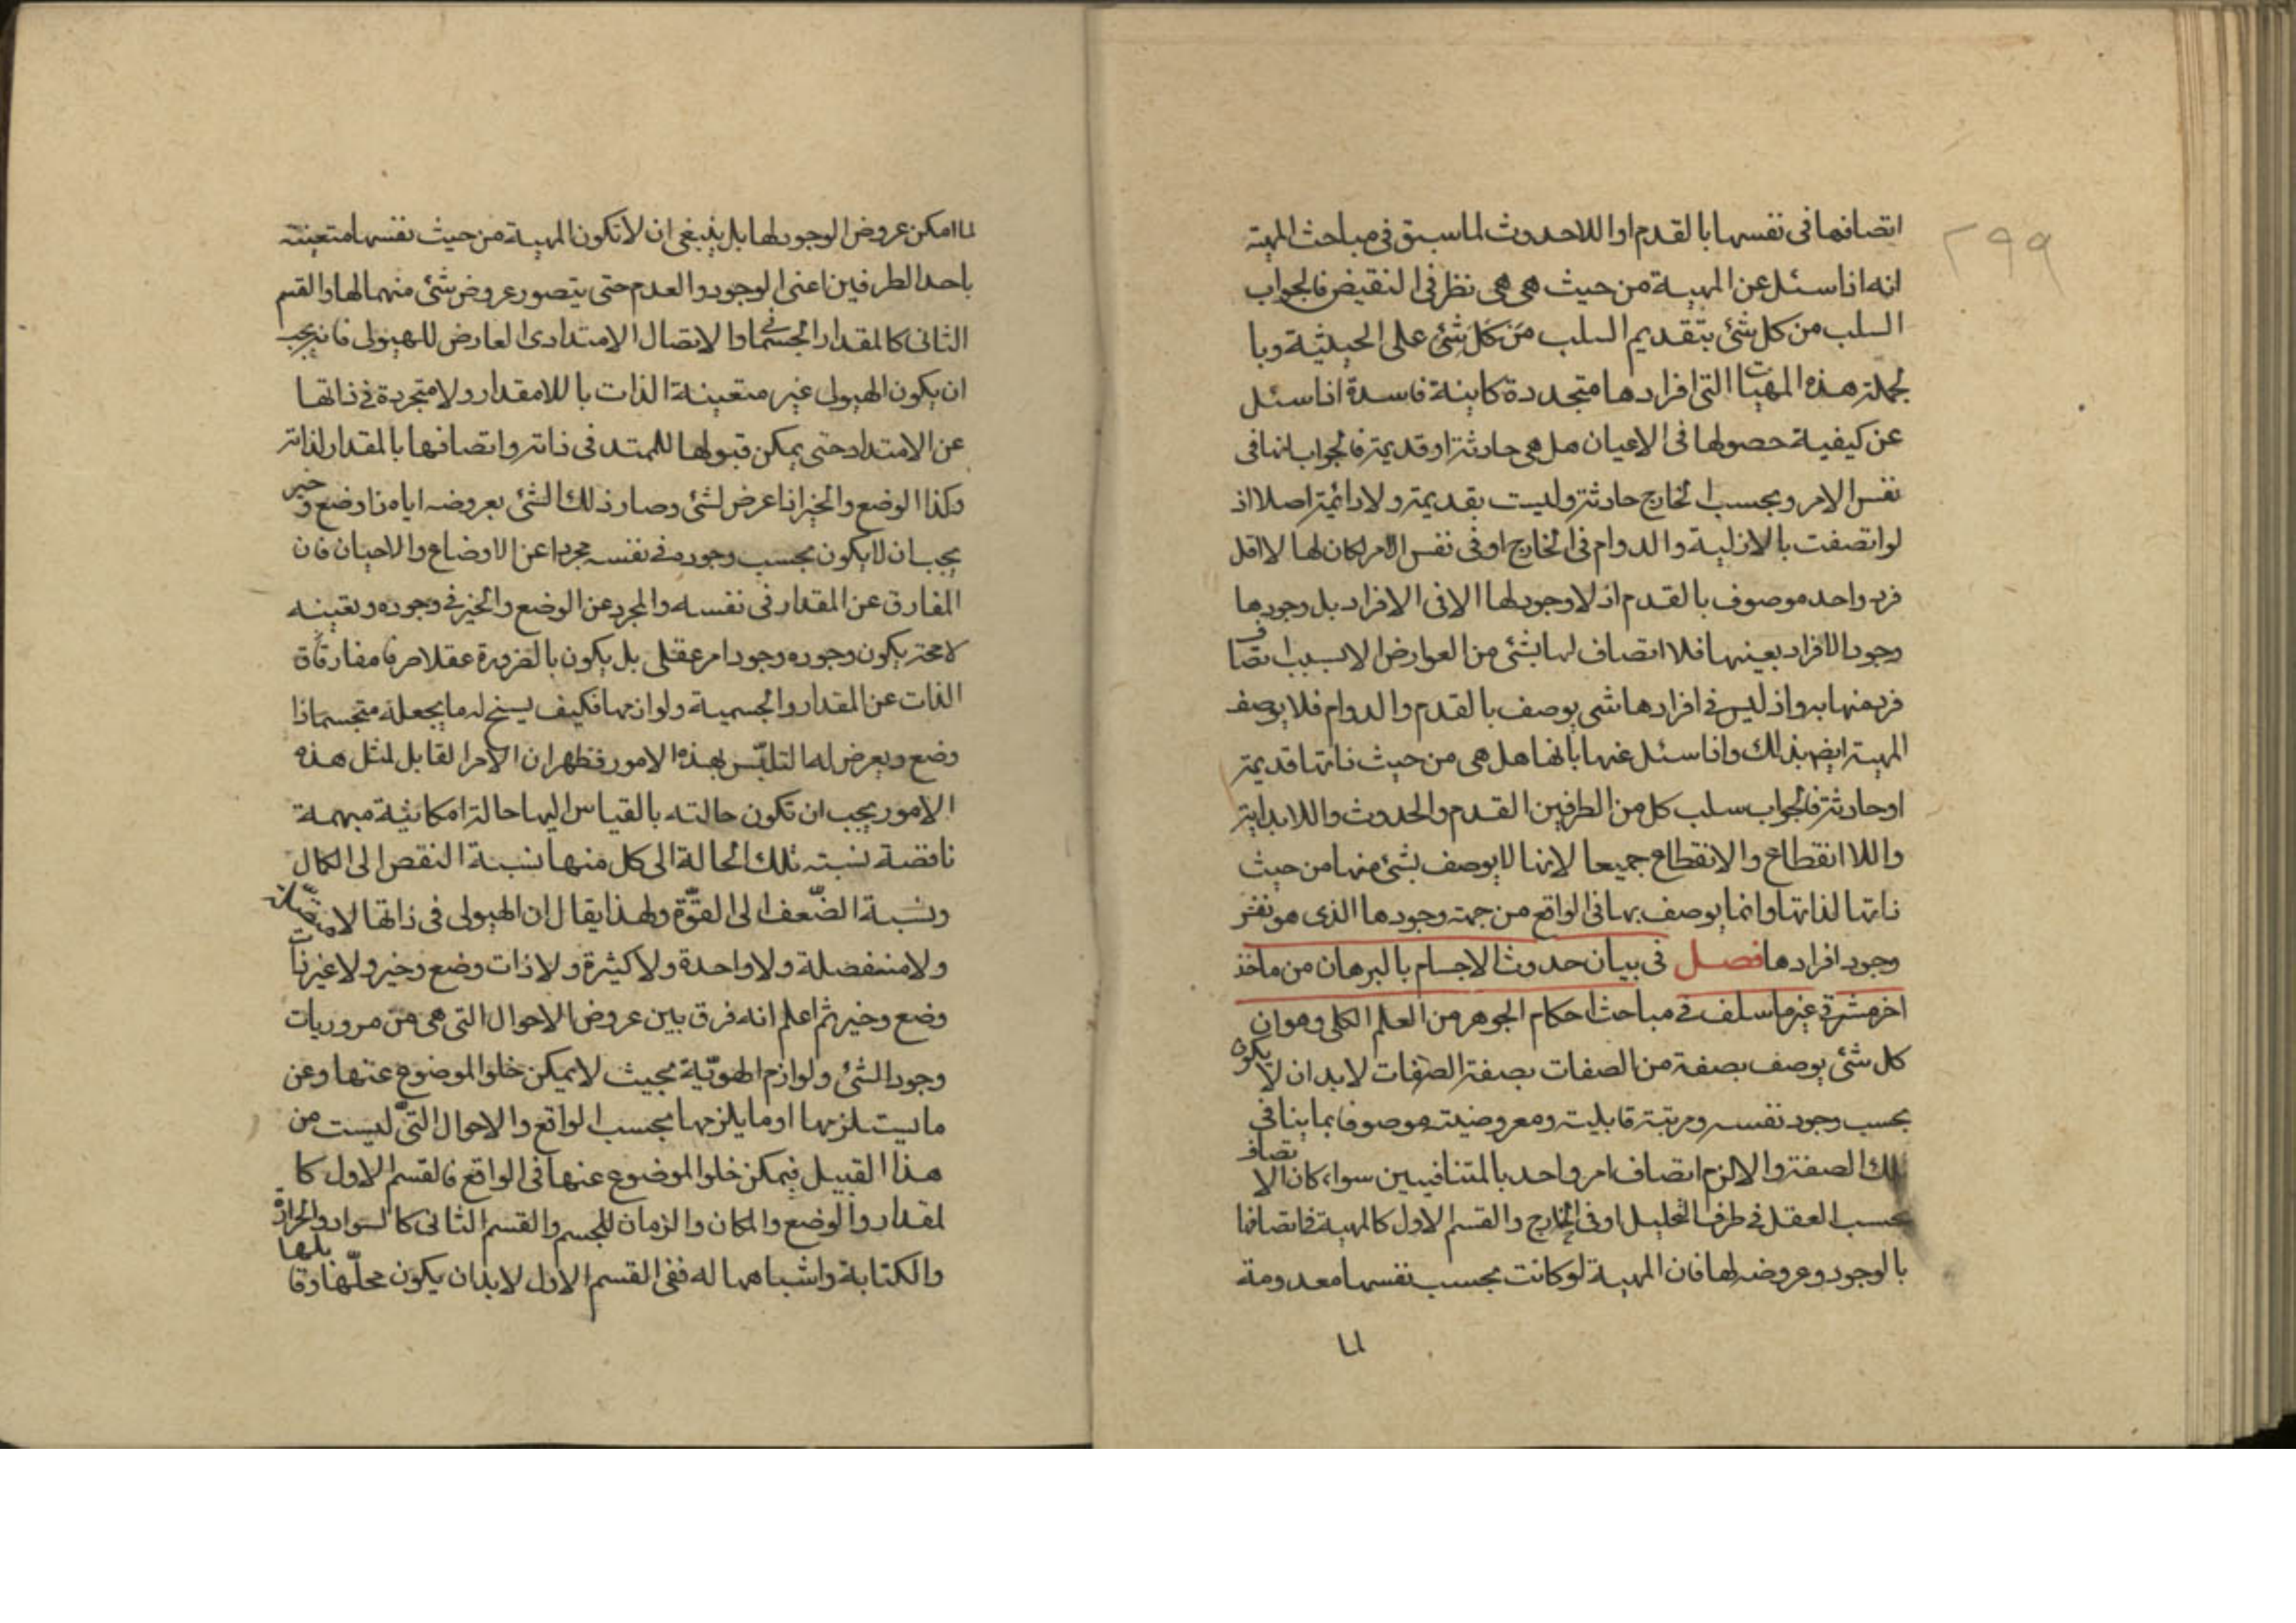 ٢٩٩
اتصافها فى نفسها بالقدم او اللاحدوث لما سبق فى مباحث المهية
انه اذا سئل عن المهية من حيث هى هى نظر فى النقيض فالجواب
السلب من كل شئ بتقديم السلب من كل شئ على الحيثية وبا
لجملة هذه المهيات التى افرادها متجددة كاينة فاسدة اذا سئل
عن كيفية حصولها فى الاعيان هل هى حادثة او قديمة فالجواب انها فى
نفس الامر وبحسب الخارج حادثة وليست بقديمة ولا دائمة اصلا اذ
لو اتصفت بالازلية والدوام فى الخارج او فى نفس الامر لكان لها لا اقل
فرد واحد موصوف بالقدم اذ لا وجود لها الا فى الافراد بل وجودها
وجود الافراد بعينها فلا اتصاف لها بشئ من العوارض الا بسبب اتصاف
فرد منها به واذ ليس فى افرادها شى يوصف بالقدم والدوام فلا يوصف
المهية ايض بذلك واذا سئل عنها بانها هل هى من حيث ذاتها قديمة
او حادثة فالجواب سلب كل من الطرفين القدم والحدوث واللابداية
واللا انقطاع والانقطاع جميعا لانها لا يوصف بشئ منها من حيث
ذاتها لذاتها وانما يوصف بها فى الواقع من جهة وجودها الذى هو نفس
وجود افرادها فصل فى بيان حدوث الاجسام بالبرهان من ماخذ
اخر مشرقى غير ما سلف فى مباحث احكام الجوهر من العلم الكلى وهو ان
كل شئ يوصف بصفة من الصفات بصفة الصفات لا بد ان لا يكون
بحسب وجود نفسه ومرتبة قابليته ومعروضيته موصوفا بما ينافى
تلك الصفة والا لزم اتصاف امر واحد بالمتنافيين سواء كان الاتصاف
بحسب العقل فى ظرف التحليل او فى الخارج والقسم الاول كالمهية فاتصافها
بالوجود وعروضه لها فان المهية لو كانت بحسب نفسها معدومة
لما
لما امكن عروض الوجود لها بل ينبغى ان لا تكون المهية من حيث نفسها متعينة
باحد الطرفين اعنى الوجود والعدم حتى يتصور عروض شئ منهما لها والقسم
الثانى كالمقدار الجسمانى والاتصال الامتدادى العارض للهيولى فانه يجب
ان يكون الهيولى غير متعينة الذات باللامقدار ولا متجردة فى ذاتها
عن الامتداد حتى يمكن قبولها للممتد فى ذاته واتصافها بالمقدار لذاته
وكذا الوضع والحيز اذا عرض لشئ وصار ذلك الشئ بعروضه اياه ذا وضع وحيز
يجب ان لا يكون بحسب وجوده فى نفسه مجردا عن الاوضاع والاحيان فان
المفارق عن المقدار فى نفسه والمجرد عن الوضع والحيز فى وجوده وتعينه
لا محة يكون وجوده وجود امر عقلى بل يكون بالضرورة عقلا صرفا مفارقة
الذات عن المقدار والجسمية ولوازمها فكيف يسنح له ما يجعله متجسما ذا
وضع ويعرض له التلبّس بهذه الامور فظهر ان الامر القابل لمثل هذه
الامور يجب ان تكون حالته بالقياس اليها حالة امكانية مبهمة
ناقصة نسبته تلك الحالة الى كل منها نسبة النقص الى الكمال
ونسبة الضّعف الى القوّة ولهذا يقال ان الهيولى فى ذاتها لا متصلة
ولا منفصلة ولا واحدة ولا كثيرة ولا ذات وضع وحيز ولا غير ذات
وضع وحيز ثم اعلم انه فرق بين عروض الاحوال التى هى من ضروريات
وجود الشئ ولوازم الهويّة بحيث لا يمكن خلو الموضوع عنها وعن
ما يستلزمها او ما يلزمها بحسب الواقع والاحوال التى ليست من
هذا القبيل فيمكن خلو الموضوع عنها فى الواقع فالقسم الاول كا
لمقدار والوضع والمكان والزمان للجسم والقسم الثانى كالسواد والحرارة
والكتابة واشباهها له ففى القسم الاول لا بد ان يكون محلّها وقابلها